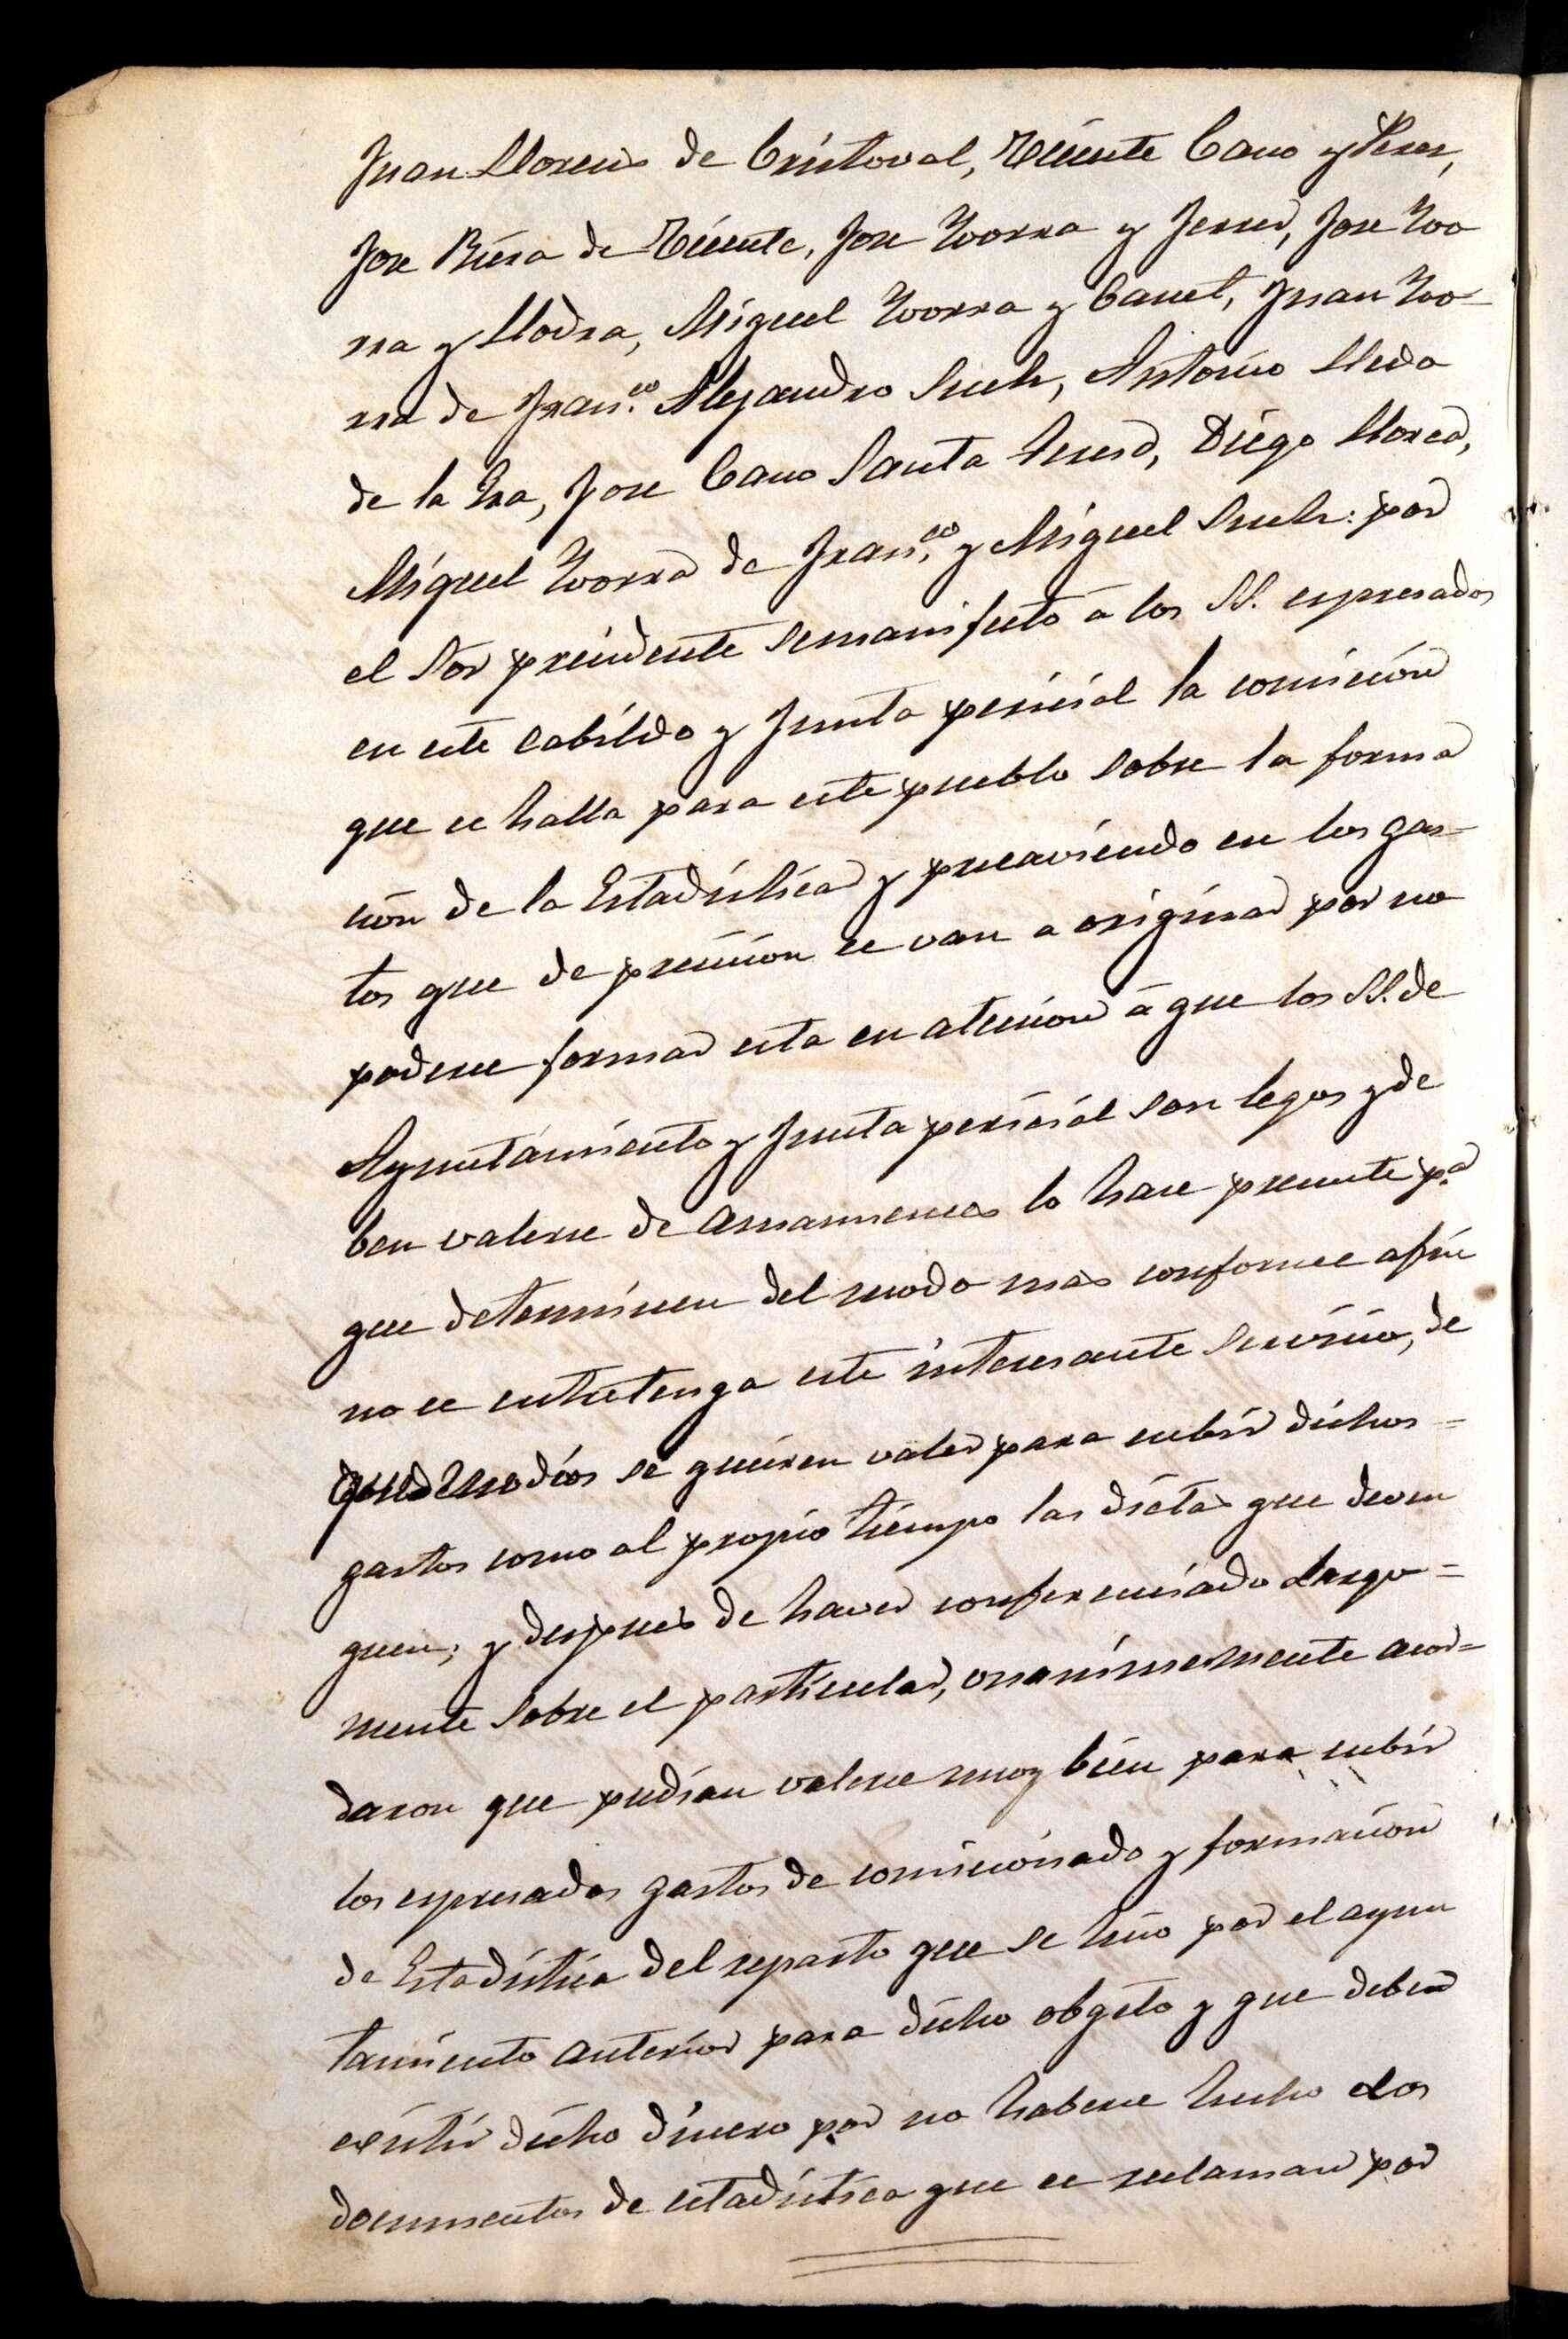 Juan Llorens de Cristoval, Vicente Cano y Perez,
Jose Riera de Vicente, Jose Yvorra y Ferrer, Jose Yvo
rra y Llodra, Miguel Yvorra y Canet, Juan Yvo-
rra de Franco. Alejandro Such, Antonio Lledo
de la Era, Jose Cano Santa Teresa, Diego Llorca,
Miguel Yvorra de Franco. y Miguel Such: por
el Sor presidente se manifestó á los SS. espresados
en este cabildo y Junta pericial la comision
que se halla para este pueblo sobre la forma
cion de la Estadistica y precaviendo en los gas-
tos que de precicion se van a originar por no
poderse formar esta en atencion á que los SS. de
Ayuntamiento y Junta pericial son legos y de
ben valerse de amanuences lo hace presente pa
que determinen del modo mas conforme afin
no se entretenga este interesante servicio, de
que medios se quieren valer para cubrir dichos =
gastos como al propio tiempo las dietas que deven
guen; y despues de haver conferenciado larga =
mente sobre el particular, unanimemente acor=
daron que pudian valerse muy bien para cubrir
los espresados gastos de comicionado y formacion
de Estadistica del reparto que se hiso por el ayun
tamiento anterior para dicho obgeto y que deben
existir dicho dinero por no haberse hecho los
documentos de estadistica que se reclaman por